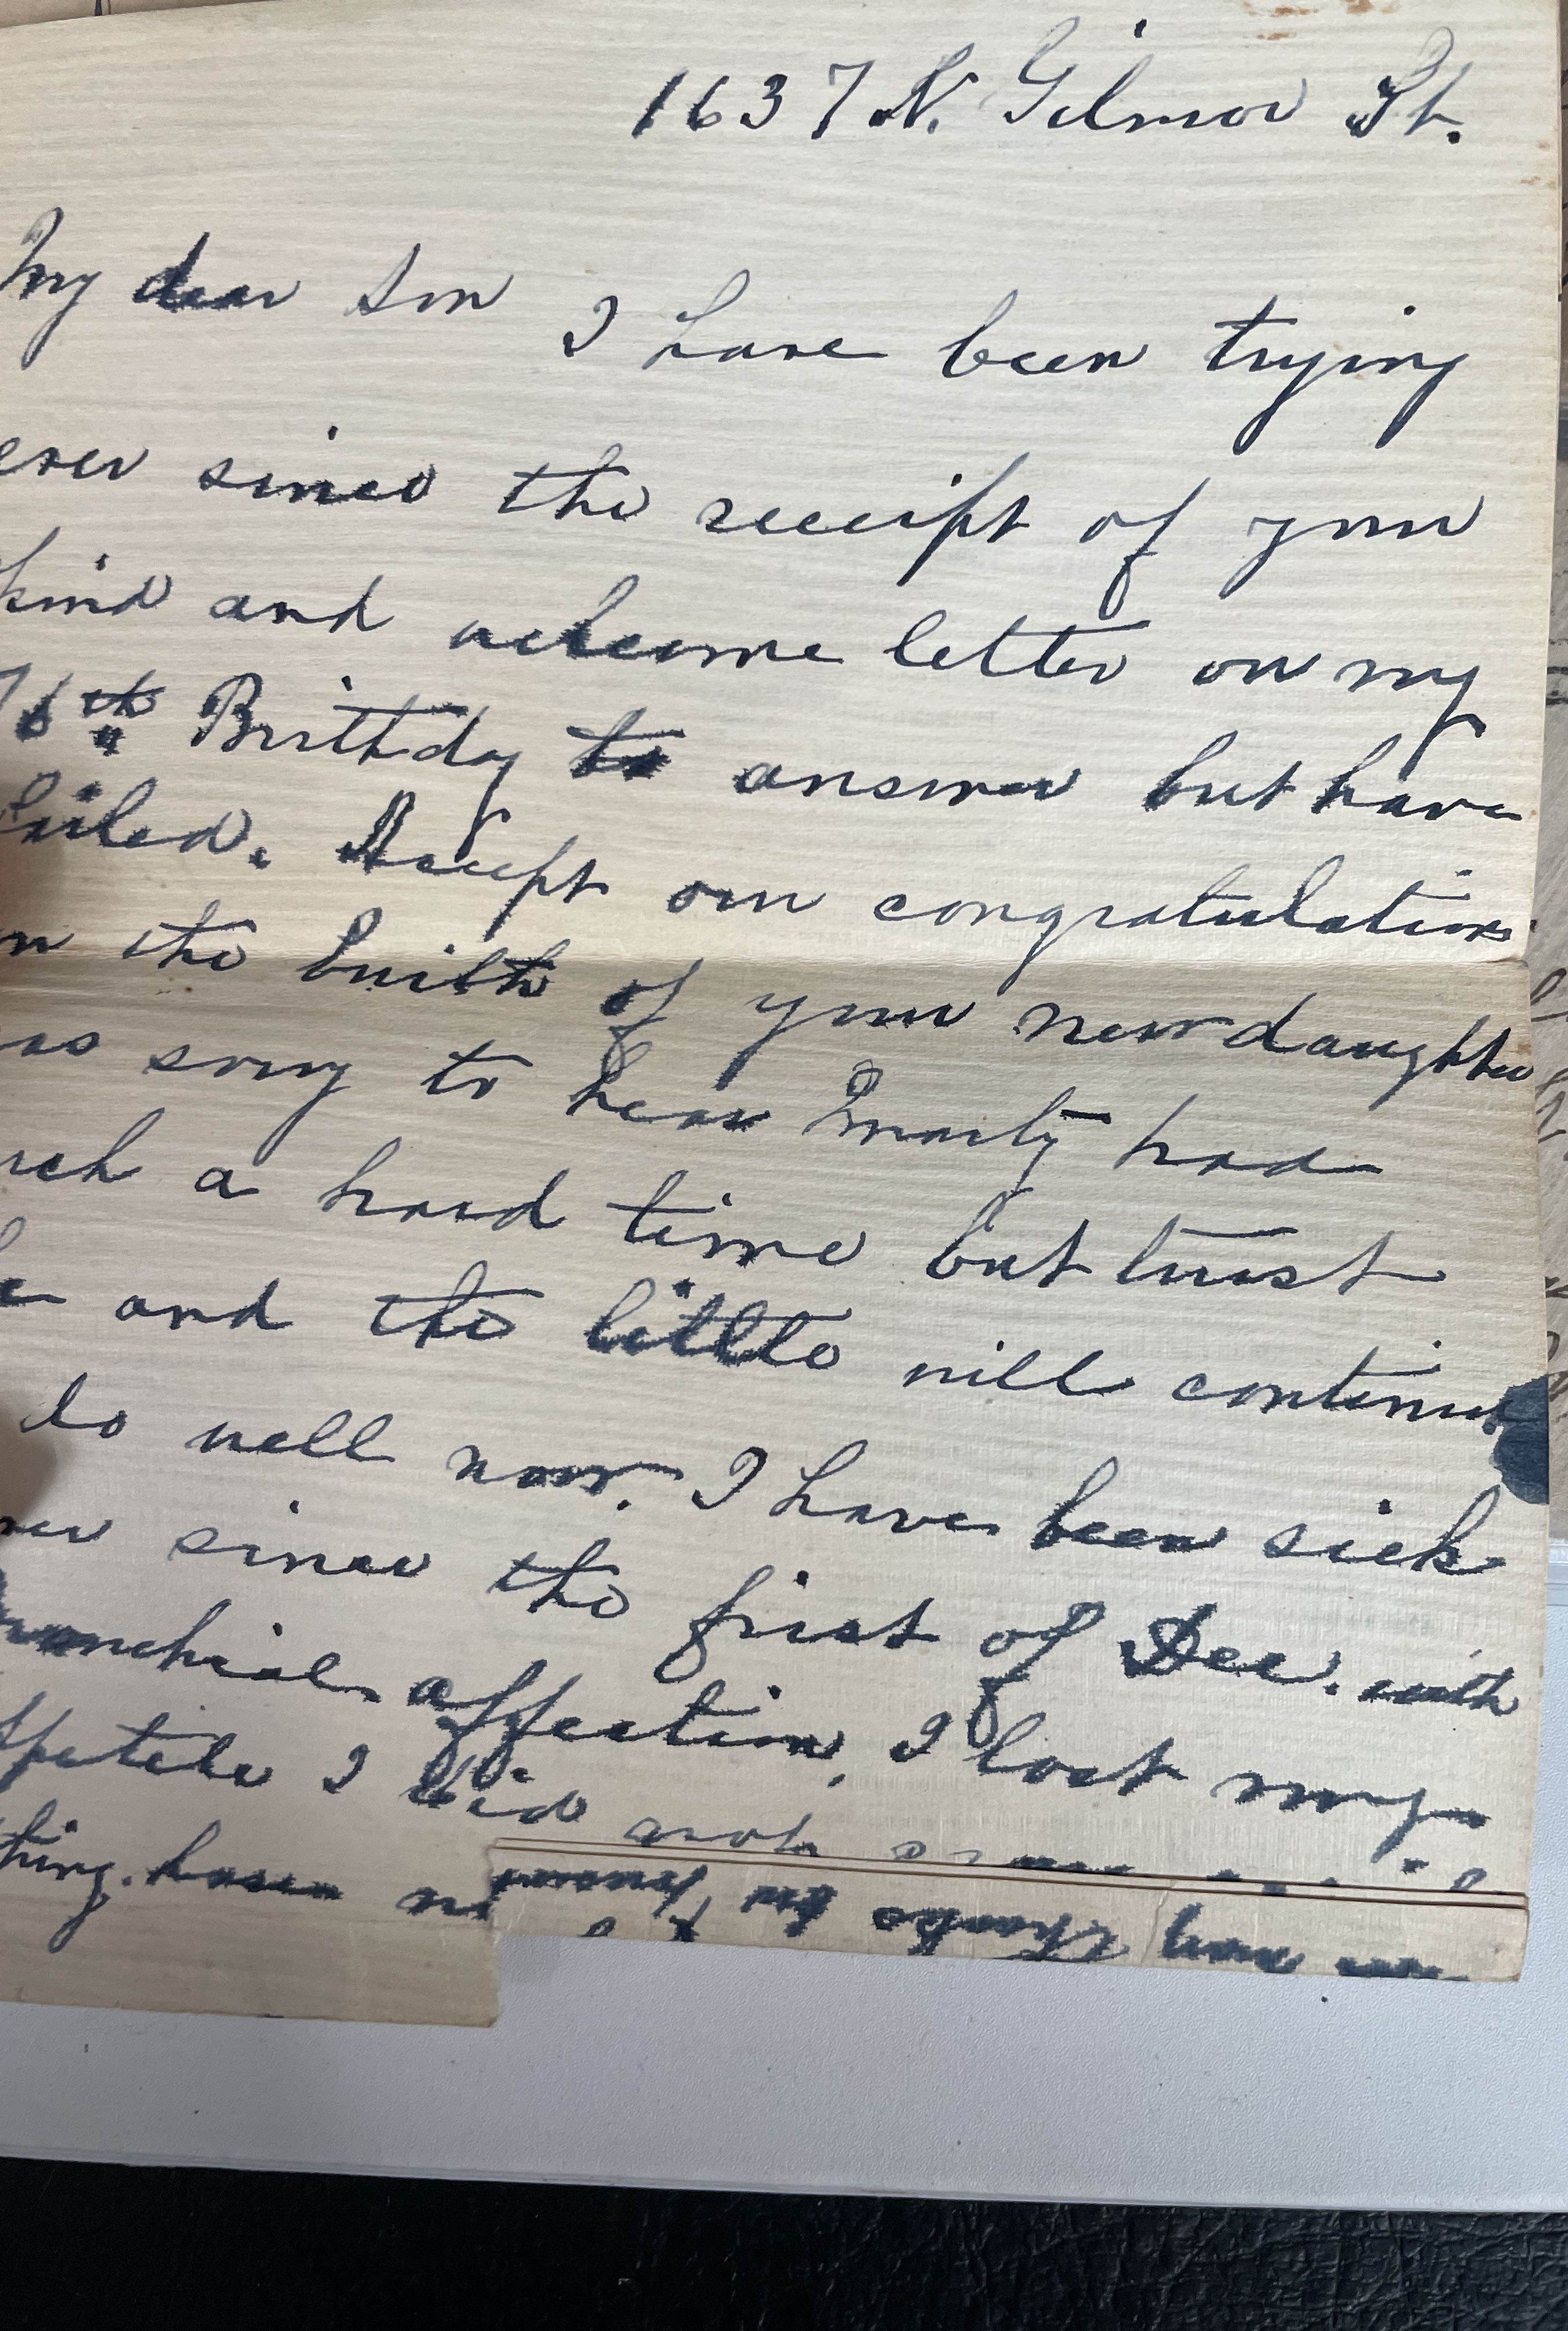 1637 N. Gilmor St.
My dear Son I have been trying
ever since the receipt of your
kind and welcome letter on my
76th Birthday to answer but have
failed. Accept our congratulations
n the birth of your new daughter
as sorry to hear had
uch a hard time but trust
and the little will continue
do well now. I have been sick
since the first of Dec. with
ronchial affection, I lost my
ppetite I did not
thing.